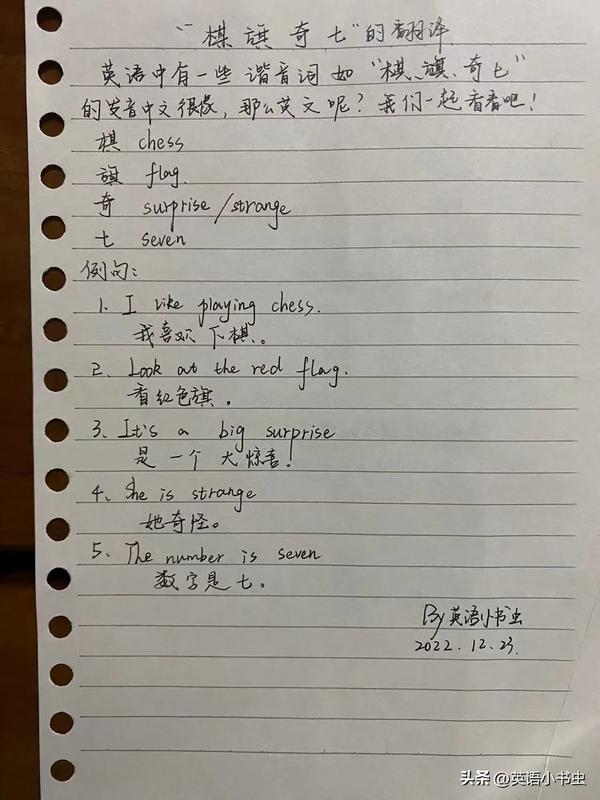 “棋 旗 奇 七”的翻译
英语中有一些谐音词如“棋、旗、奇七”
的发音中文很像，那么英文呢？我们一起看看吧！
棋 chess
旗 flag.
奇 surprise/strange
七 seven
例句：
1. I like playing chess.
我喜欢下棋。
2. Look at the red flag.
看红色旗。
3. It's a big surprise
是一个大惊喜！
4. She is strange
她奇怪。
5. The number is seven
数字是七。
By英语小书虫
2022.12.23.
头条 @英语小书虫